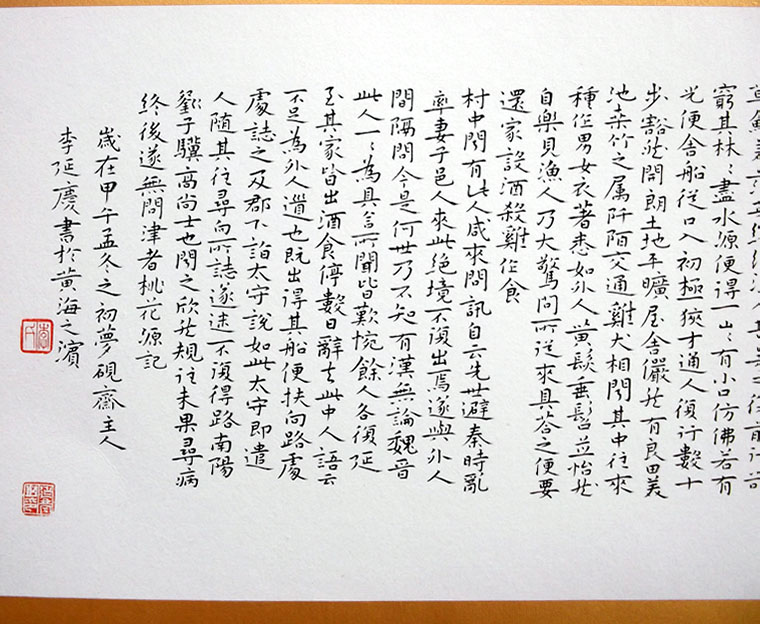 窮其林林盡水源便得一山山有小口仿佛若有
光便舍船從口入初極狹才通人復行數十
步豁然開朗土地平曠屋舍儼然有良田美
池桑竹之属阡陌交通雞犬相聞其中往來
種作男女衣著悉如外人黄髮垂髫並怡然
自樂見漁人乃大驚問所從來具荅之便要
還家設酒殺雞作食
村中聞有此人咸來問訊自云先世避秦時亂
率妻子邑人來此絶境不復出焉遂與外人
間隔問今是何世乃不知有漢無論魏晉
此人一一為具言所聞皆歎惋餘人各復延
至其家皆出酒食停數日辭去此中人語云
不足為外人道也既出得其船便扶向路處
處誌之及郡下詣太守說如此太守即遣
人随其往尋向所誌遂迷不復得路南陽
劉子驥高尚士也聞之欣然規往未果尋病
終後遂無問津者桃花源記
歲在甲午孟冬之初夢硯齋主人
李延慶書於黄海之濱